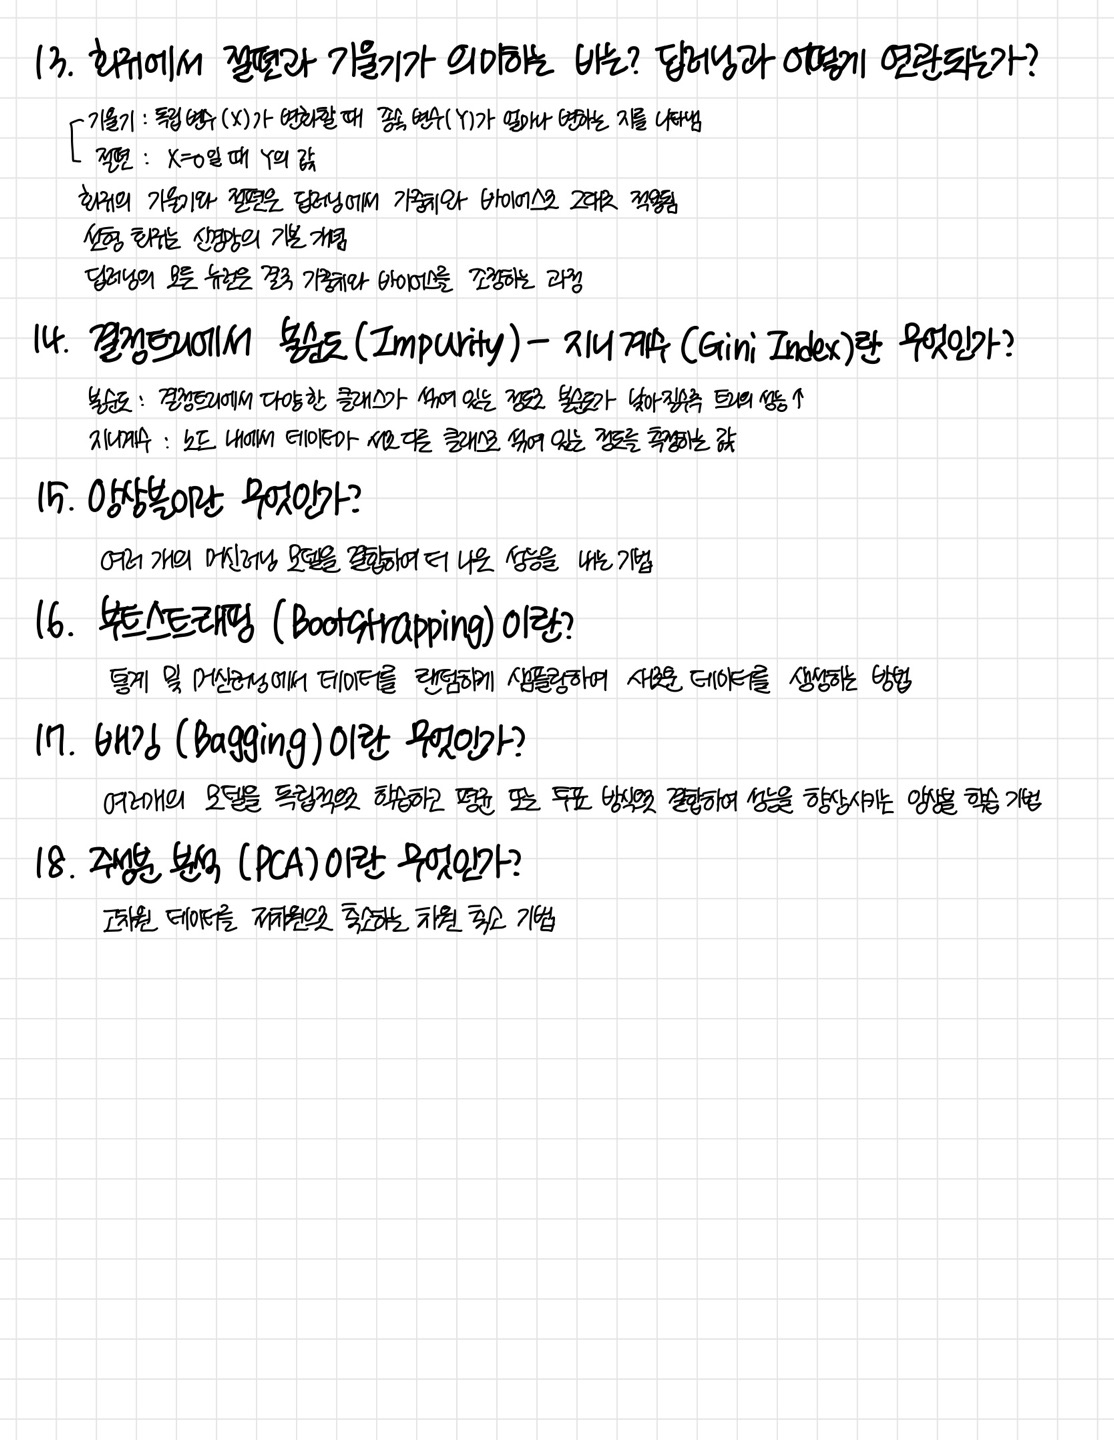 13. 회귀에서 절편과 기울기가 의미하는 바는? 딥러닝과 어떻게 연관되는가?
기울기 : 독립 변수(X)가 변화할 때 종속 변수(Y)가 얼마나 변하는 지를 나타냄
절편 : X=0일 때 Y의 값
회귀의 기울기와 절편은 딥러닝에서 가중치와 바이어스로 그대로 적용됨
선형 회귀는 신경망의 기본 개념
딥러닝의 모든 뉴런은 결국 가중치와 바이어스를 조정하는 과정
14. 결정트리에서 불순도(Impurity) – 지니 계수(Gini Index)란 무엇인가?
불순도 : 결정트리에서 다양한 클래스가 섞여 있는 정도로 불순도가 낮아질수록 트리의 성능↑
지니계수 : 노드 내에서 데이터가 서로 다른 클래스로 섞여 있는 정도를 측정하는 값
15. 앙상블이란 무엇인가?
여러 개의 머신러닝 모델을 결합하여 더 나은 성능을 내는 기법
16. 부트스트래핑 (Bootstrapping)이란?
통계 및 머신러닝에서 데이터를 랜덤하게 샘플링하여 새로운 데이터를 생성하는 방법
17. 배깅 (Bagging)이란 무엇인가?
여러개의 모델을 독립적으로 학습하고 평균 또는 투표 방식으로 결합하여 성능을 향상시키는 앙상블 학습 기법
18. 주성분 분석 (PCA)이란 무엇인가?
고차원 데이터를 저차원으로 축소하는 차원 축소 기법